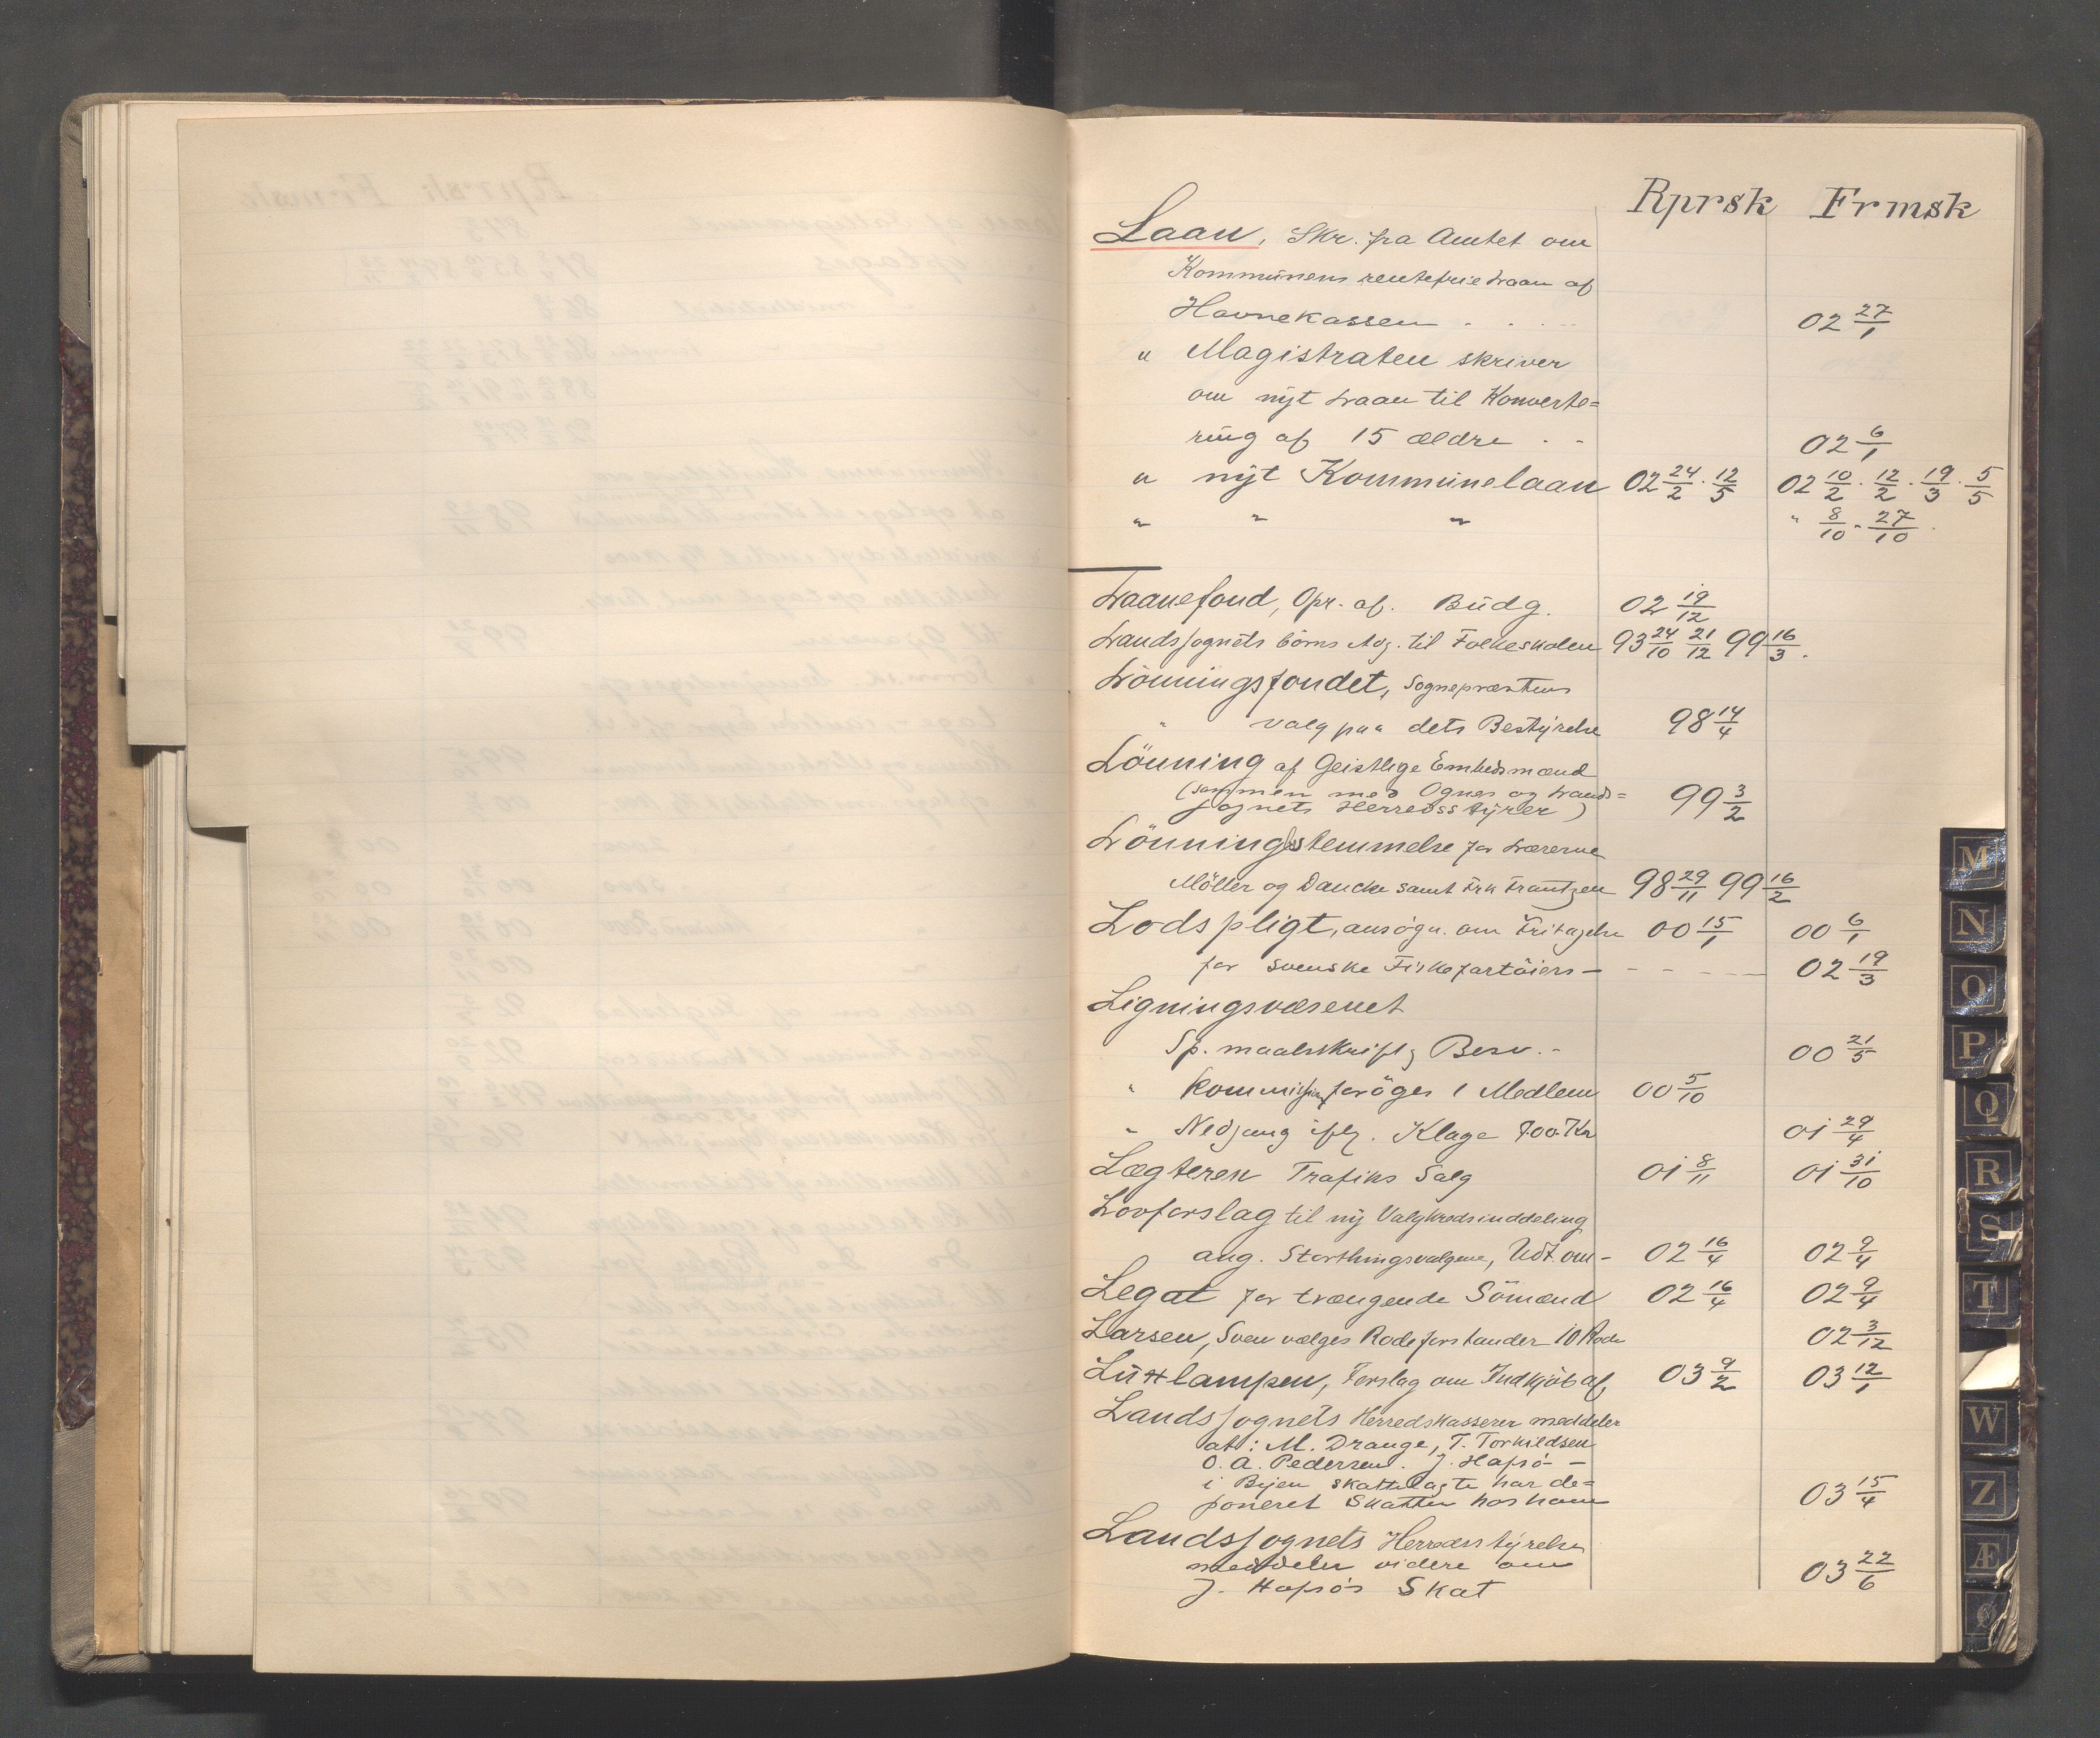 Rprsk Frmsk
Laan, Skr. fra Amtet om
Kommunens rentefrie Laan af
Havnekassen . . . . 02 27/1
" Magistraten skriver
om nyt Laan til Konverte=
ring af 15 ældre . - 02 6/1
" nyt Kommunelaan 02 24/2 . 12/5 02 10/2 . 12/2 . 19/3 . 5/5
" " " " 8/10 - 27/10
Laanefond, Opr. af. Budg. 02 19/12
Landssognets börns Adg. til Folkeskolen 93 24/10 21/12 99 16/3 .
Lönningsfondet, Sognepræstens
" valg paa dets Bestyrelse 98 14/4
Lönning af Geistlige Embedsmænd
(sammen med Ognes og Lands=
sognets Herredsstyrer) 99 3/2
Lönningsbestemmelse for Lærerne
Möller og Dancke samt Frk Frantzen 98 29/11 99 16/2
Lodspligt, ansögn. om Fritagelse 00 15/1 00 6/1
for svenske Fiskefartöiers - - - - - 02 19/3
Ligningsvæsenet
Sp. maalsskrift Besv. - 00 21/5
" Kommissionen foröges 1 Medlem 00 5/10
" Nedgang iflg. Klage 700 Kr 01 29/4
Lægteren Trafiks Salg 01 8/11 01 31/10
Lovforslag til ny Valgkredsinddeling
ang. Storthingsvalgene, Udt. om - 02 16/4 02 9/4
Legat for trængende Sömænd 02 16/4 02 9/4
Larsen, Sven vælges Rodeforstander 10 Rode 02 3/12
Luxlampen, Forslag om Indkjöb af 03 9/2 03 12/1
Landssognets Herredskasserer meddeler
at: M. Drange, T. Torkildsen
O. A. Pedersen. J. Hafsö -
i Byen skattelagte har de=
poneret Skatten hos ham 03 15/4
Landssognets Herredsstyrelse
meddeler videre om
J. Hafsös Skat 03 22/6
M
N
O
P
Q
R
S
T
W
Z
Æ
Ø